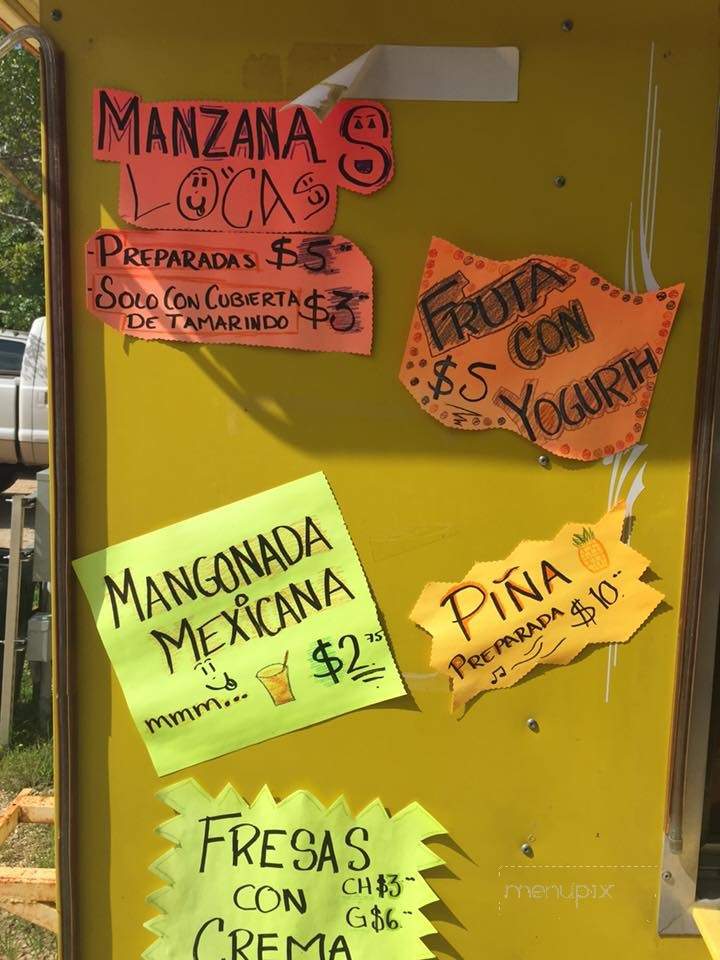 MANZANAS
LOCAS
-PREPARADAS $5
-SOLO CON CUBIERTA $3
DE TAMARINDO
FRUTA
CON
$5 YOGURTH
MANGONADA
MEXICANA
mmm... $2.75
PIÑA
PREPARADA $10.00
FRESAS
CON CH $3
G $6
CREMA
menupix